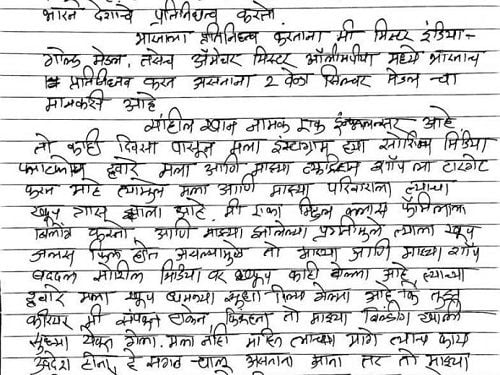 भारत देशाचे प्रतिनिधीत्व करतो.
भारताला प्रतिनिधीत्व करताना मी मिस्टर इंडिया-
गोल्ड मेडल, तसेच अ‍ॅमेचर मिस्टर ऑलीम्पीया मध्ये भारताच
प्रतिनिधीत्व करत असताना 2 वेळा सिल्वर मेडल चा
मानकरी आहे
साहील खान नामक एक इंफ्लुएन्सर आहे
तो काही दिवसा पासून मला इंस्टाग्राम ह्या सोशिअल मिडिया
द्वारे मला आणि माझ्या शॉप ला टारगेट
करत आहे त्यामुळे मला आणि माझ्या परिवाराला त्याचा
खूप त्रास झाला आहे. मी एका मिडल क्लास फॅमिलीला
बिलाँग करतो आणि माझ्या झालेल्या प्रगतीमुळे त्याला खूप
जलस फिल होत असल्यामुळे तो माझ्या आणि माझ्या शॉप
बददल सोशिल मिडिया वर खूप काही बोलला आहे त्याच्या
द्वारे मला खूप धमक्या सुद्धा दिल्या गेल्या आहे कि तुझ
करीयर मी संपवून टाकेन तो माझ्या बिल्डींग खाली
सुध्दा येऊन गेला. मला नाही माहित त्याच्या मागे त्याचा काय
उद्देश होता, हे सगळ चालू असताना आता तर तो माझ्या